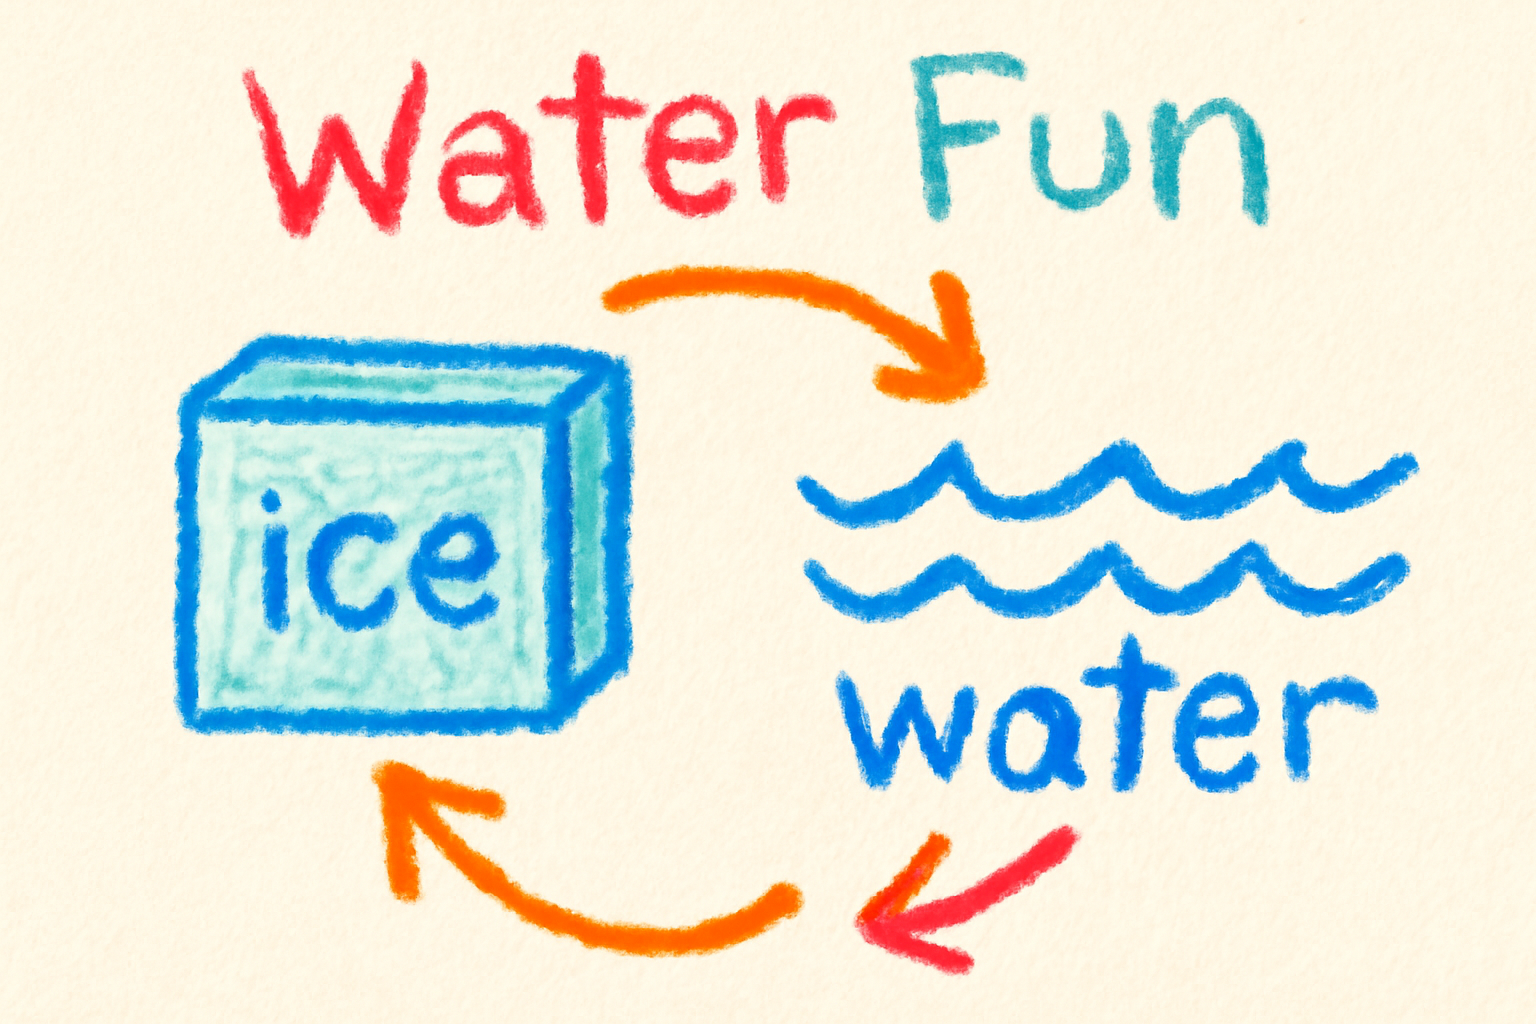 Water Fun
ice
water